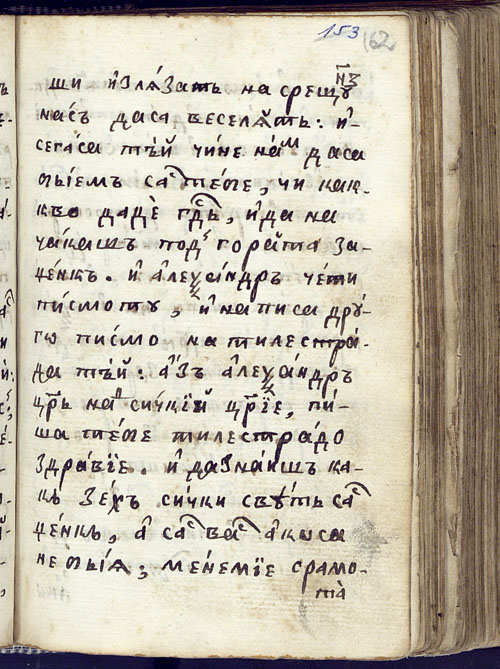 153 (62
н҃з
щи и҆злѧ́затъ на срещꙋ
насъ даса веселѧ́тъ: и҆-
сега́са тъ́й чине на́м даса
біемъ сас тебе, чи как-
къо дадѐ гдⷭ҇ь, и҆да на
ча́кашъ под гора́та за-
женкъ. и҆ а҆леѯа́ндръ че́ти
писмоту, и҆ написа дрꙋ́-
го пи́смо на милестра́-
да тъ́й: а҆́зъ а҆леѯа́ндръ
цр҃ь на сичкїѝ цр҃їе, пи́-
ша те́бе милестра́до
здра́вїе. и҆ дазна́ишъ ка-
къ зе́хъ си́чки свѣ́тъ сас
женкъ, а҆ сас васъ а҆коса
не бы́ѧ; ме́немїе срамо-
та̀